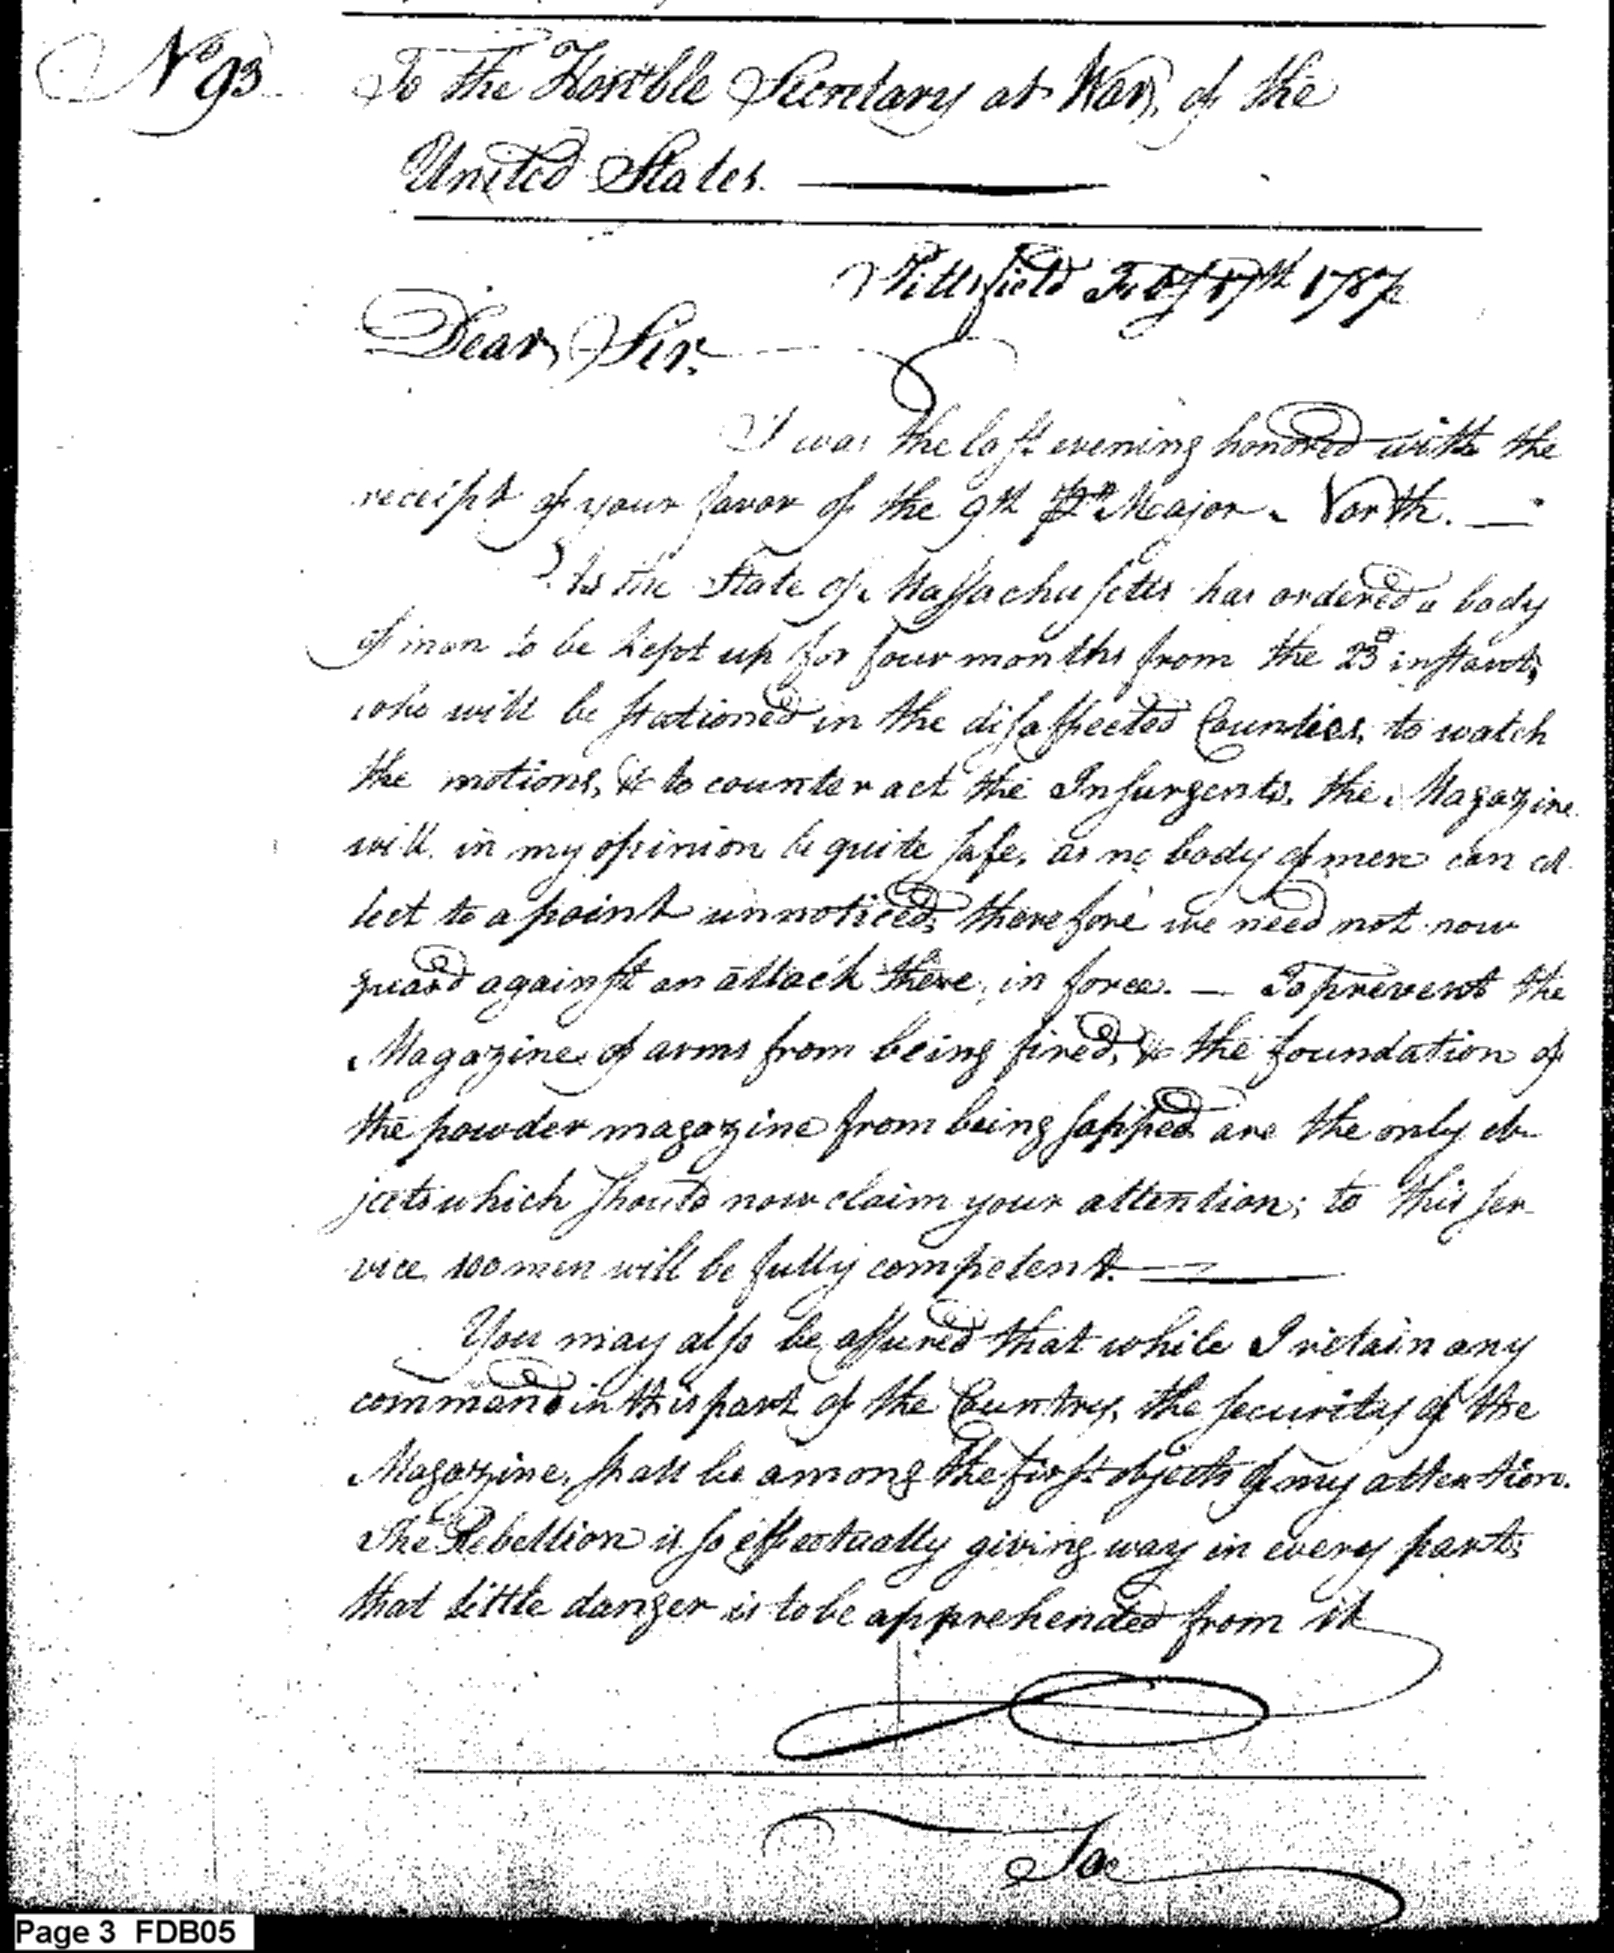 No 93
To the Hon'ble Secretary at War, of the
United States.
Pittsfield Feby 17th 1787
Dear Sir.
I was the last evening honored with the
receipt of your favor of the 9th pr Major North. —
As the State of Massachusetts has ordered a body
of men to be kept up for four months from the 23d instant,
who will be stationed in the disaffected Counties, to watch
the motions, & to counteract the Insurgents, the Magazine
will in my opinion be quite safe, as no body of men can col
lect to a point unnoticed, therefore we need not now
guard against an attack there, in force. — To prevent the
Magazine of arms from being fired, & the foundation of
the powder magazine from being sapped are the only ob-
jects which should now claim your attention; to this ser-
vice 100 men will be fully competent.
You may also be assured that while I retain any
command in this part of the Country, the security of the
Magazine, shall be among the first objects of my attention.
The Rebellion is so effectually giving way in every part;
that little danger is to be apprehended from it
To
Page 3 FDB05